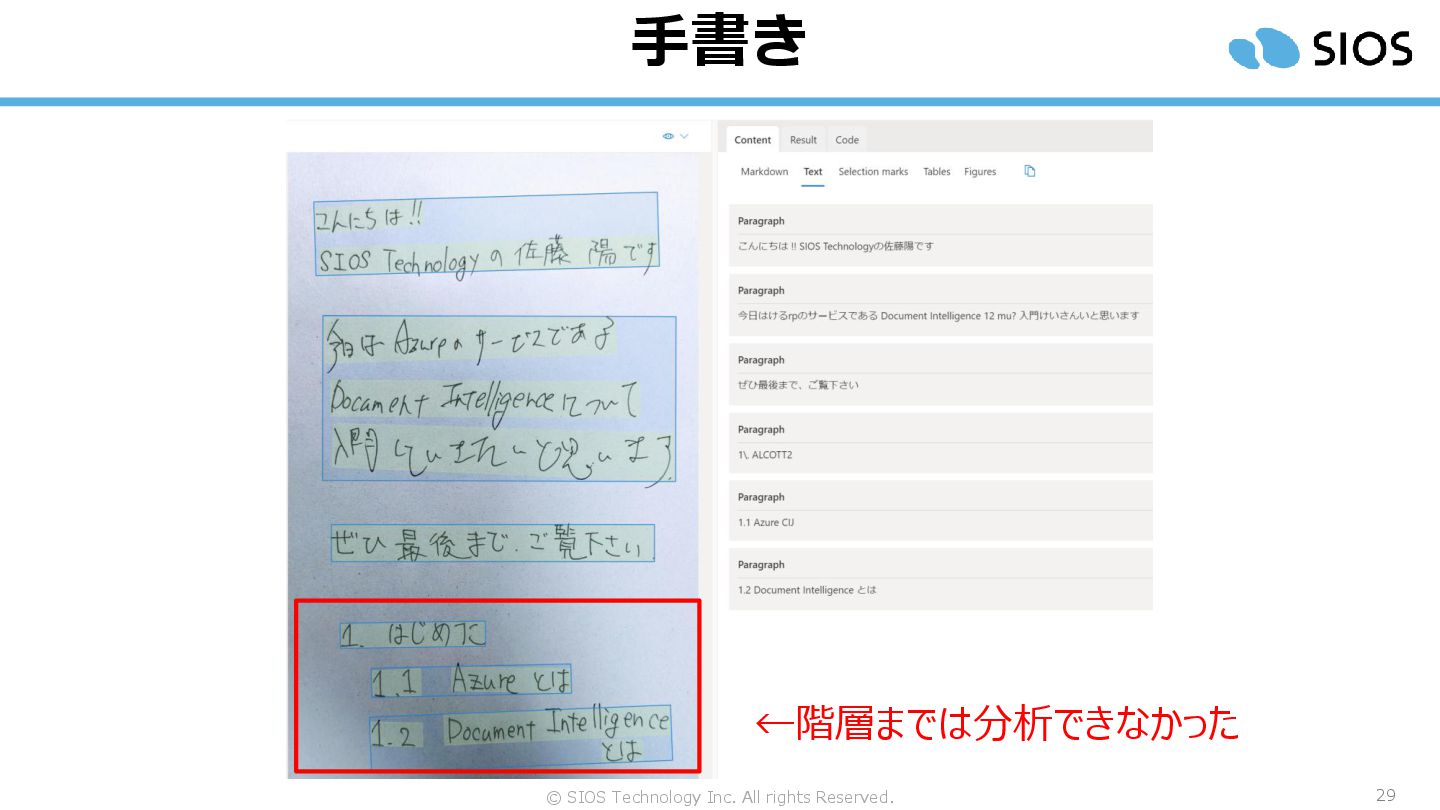 手書き
SIOS
Content Result Code
Markdown Text Selection marks Tables Figures
こんにちは!!
SIOS Technologyの佐藤 陽です
今日は Azureのサービスである
Document Intelligenceについて
入門していきたいと思います
ぜひ最後まで、ご覧下さい
1. はじめに
1.1 Azure とは
1.2 Document Intelligence
とは
Paragraph
こんにちは !! SIOS Technologyの佐藤陽です
Paragraph
今日はけるrpのサービスである Document Intelligence 12 mu? 入門けいさんいと思います
Paragraph
ぜひ最後まで、ご覧下さい
Paragraph
1\. ALCOTT2
Paragraph
1.1 Azure CIJ
Paragraph
1.2 Document Intelligence とは
←階層までは分析できなかった
© SIOS Technology Inc. All rights Reserved.
29